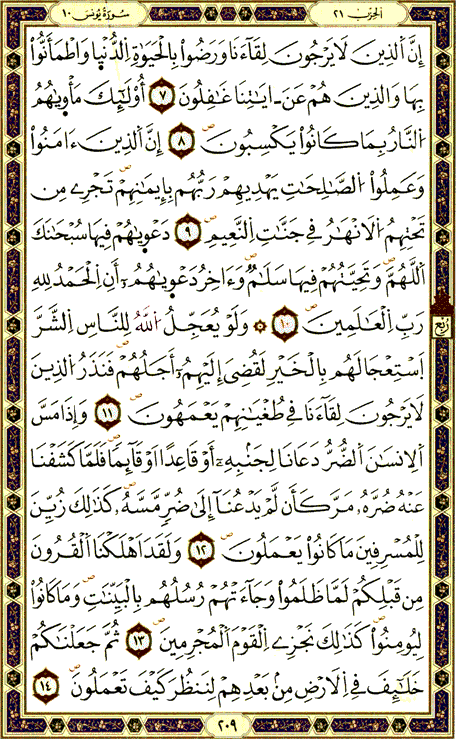 سُورَةُ يُونُسَ ١٠
الحِزْبُ ٢١
إِنَّ اَ۬لذِينَ لَا يَرْجُونَ لِقَآءَنَا وَرَضُواْ بِالْحَيَوٰةِ اِ۬لدُّنْي۪ا وَاطْمَأَنُّواْ
بِهَا وَالذِينَ هُمْ عَنَ اٰيَٰتِنَا غَٰفِلُونَ ٧ أُوْلَٰٓئِكَ مَأْو۪يٰهُمُ
اُ۬لنَّارُ بِمَا كَانُواْ يَكْسِبُونَ ٨ إِنَّ اَ۬لذِينَ ءَامَنُواْ
وَعَمِلُواْ اُ۬لصَّٰلِحَٰتِ يَهْدِيهِمْ رَبُّهُم بِإِيمَٰنِهِمْ تَجْرِے مِن
تَحْتِهِمُ اُ۬لَانْهَٰرُ فِے جَنَّٰتِ اِ۬لنَّعِيمِ ٩ دَعْو۪يٰهُمْ فِيهَا سُبْحَٰنَكَ
اَ۬للَّهُمَّ وَتَحِيَّتُهُمْ فِيهَا سَلَٰمٞ وَءَاخِرُ دَعْو۪يٰهُمُۥٓ أَنِ اِ۬لْحَمْدُ لِلهِ
رَبِّ اِ۬لْعَٰلَمِينَ ١٠ ۞ وَلَوْ يُعَجِّلُ اُ۬للَّهُ لِلنَّاسِ اِ۬لشَّرَّ
رُبُع
اَ۪سْتِعْجَالَهُم بِالْخَيْرِ لَقُضِيَ إِلَيْهِمُۥٓ أَجَلُهُمْ فَنَذَرُ اُ۬لذِينَ
لَا يَرْجُونَ لِقَآءَنَا فِے طُغْيَٰنِهِمْ يَعْمَهُونَ ١١ وَإِذَا مَسَّ
اَ۬لِانسَٰنَ اَ۬لضُّرُّ دَعَانَا لِجَنۢبِهِۦٓ أَوْ قَاعِداً اَوْ قَآئِماً فَلَمَّا كَشَفْنَا
عَنْهُ ضُرَّهُۥ مَرَّ كَأَن لَّمْ يَدْعُنَآ إِلَىٰ ضُرّٖ مَّسَّهُۥ كَذَٰلِكَ زُيِّنَ
لِلْمُسْرِفِينَ مَا كَانُواْ يَعْمَلُونَ ١٢ وَلَقَدَ اَهْلَكْنَا اَ۬لْقُرُونَ
مِن قَبْلِكُمْ لَمَّا ظَلَمُواْ وَجَآءَتْهُمْ رُسُلُهُم بِالْبَيِّنَٰتِ وَمَا كَانُواْ
لِيُومِنُواْ كَذَٰلِكَ نَجْزِے اِ۬لْقَوْمَ اَ۬لْمُجْرِمِينَ ١٣ ثُمَّ جَعَلْنَٰكُمْ
خَلَٰٓئِفَ فِے اِ۬لَارْضِ مِنۢ بَعْدِهِمْ لِنَنظُرَ كَيْفَ تَعْمَلُونَ ١٤
٢٠٩